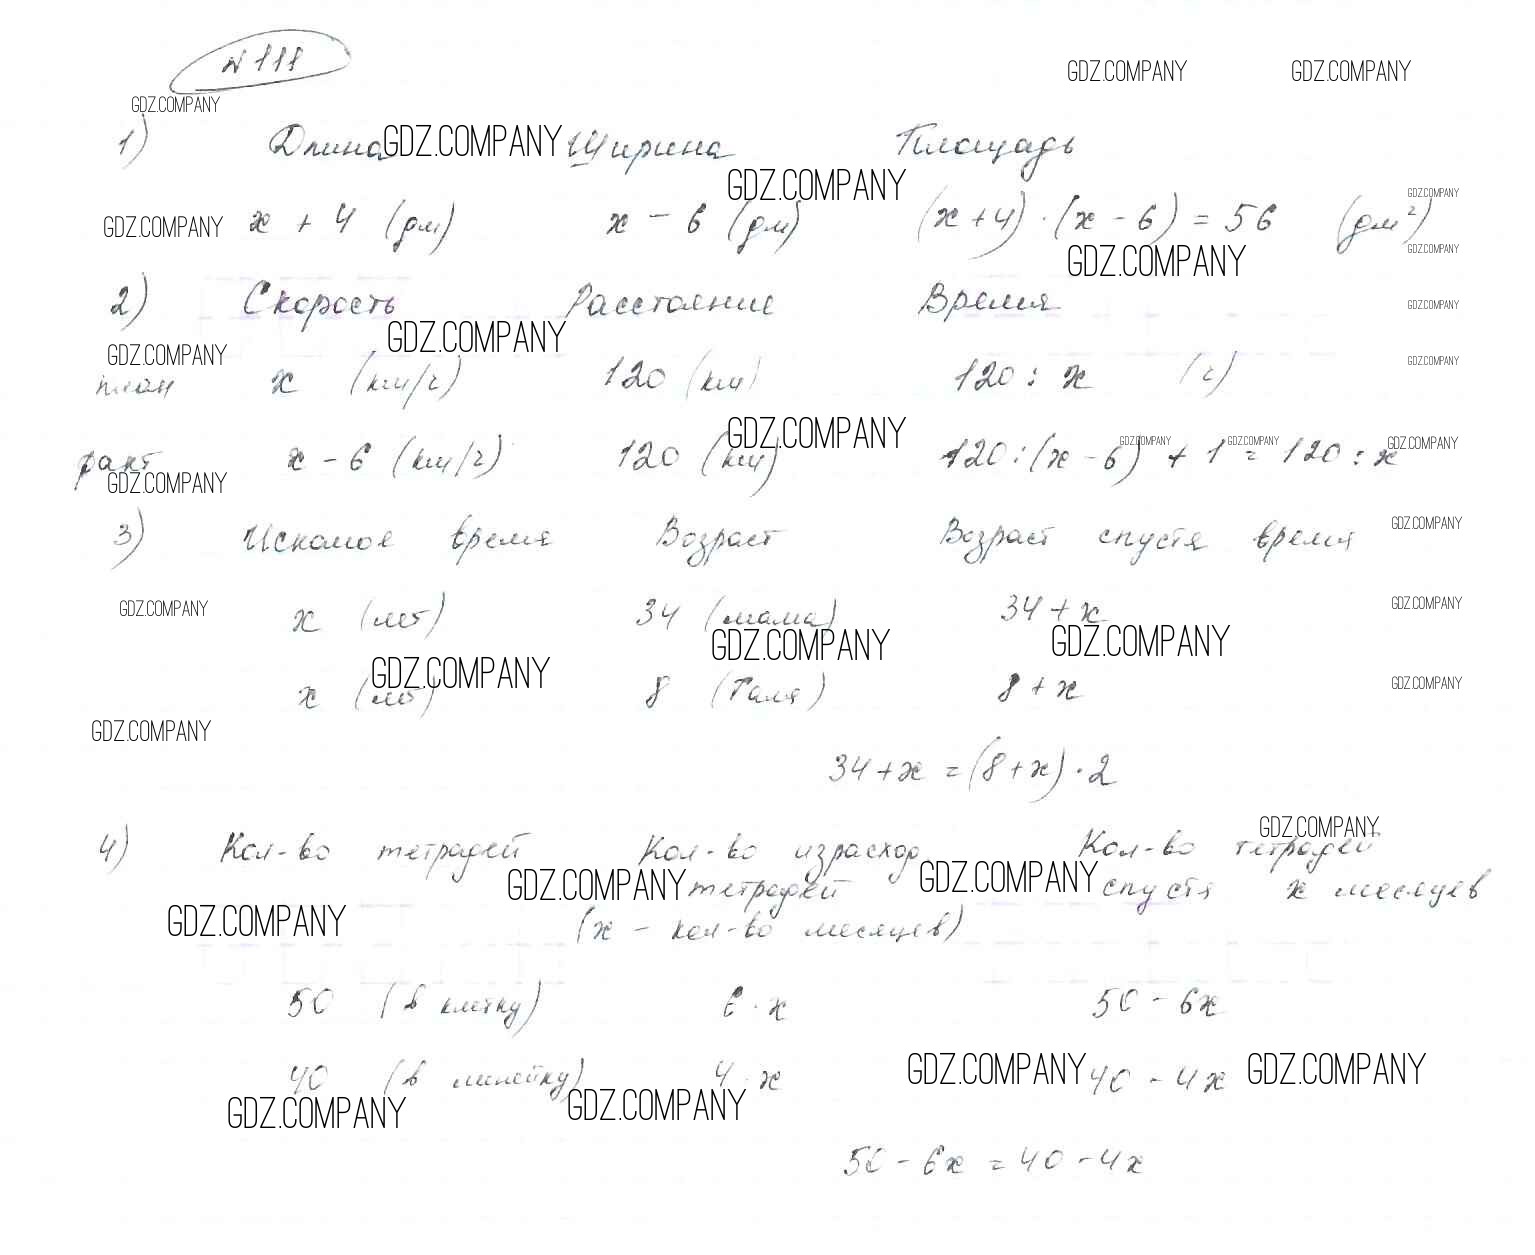 № 111
GDZ.COMPANY GDZ.COMPANY
GDZ.COMPANY
1) Длина GDZ.COMPANY Ширина Площадь
GDZ.COMPANY GDZ.COMPANY
GDZ.COMPANY x + 4 (дм) x - 6 (дм) (x + 4) · (x - 6) = 56 (дм²)
GDZ.COMPANY GDZ.COMPANY
2) Скорость Расстояние Время GDZ.COMPANY
GDZ.COMPANY
GDZ.COMPANY GDZ.COMPANY
план x (км/ч) 120 (км) 120 : x (ч)
GDZ.COMPANY GDZ.COMPANY GDZ.COMPANY GDZ.COMPANY
факт x - 6 (км/ч) 120 (км) 120 : (x - 6) + 1 = 120 : x
GDZ.COMPANY
3) Искомое время Возраст Возраст спустя время GDZ.COMPANY
GDZ.COMPANY x (лет) 34 (мама) 34 + x GDZ.COMPANY
GDZ.COMPANY GDZ.COMPANY GDZ.COMPANY
x (лет) 8 (Галя) 8 + x GDZ.COMPANY
GDZ.COMPANY
34 + x = (8 + x) · 2
GDZ.COMPANY
4) Кол-во тетрадей Кол-во израсход Кол-во тетрадей
GDZ.COMPANY тетрадей GDZ.COMPANY спустя x месяцев
GDZ.COMPANY (x - кол-во месяцев)
50 (в клетку) 6 · x 50 - 6x
40 (в линейку) 4 · x GDZ.COMPANY 40 - 4x GDZ.COMPANY
GDZ.COMPANY GDZ.COMPANY
50 - 6x = 40 - 4x